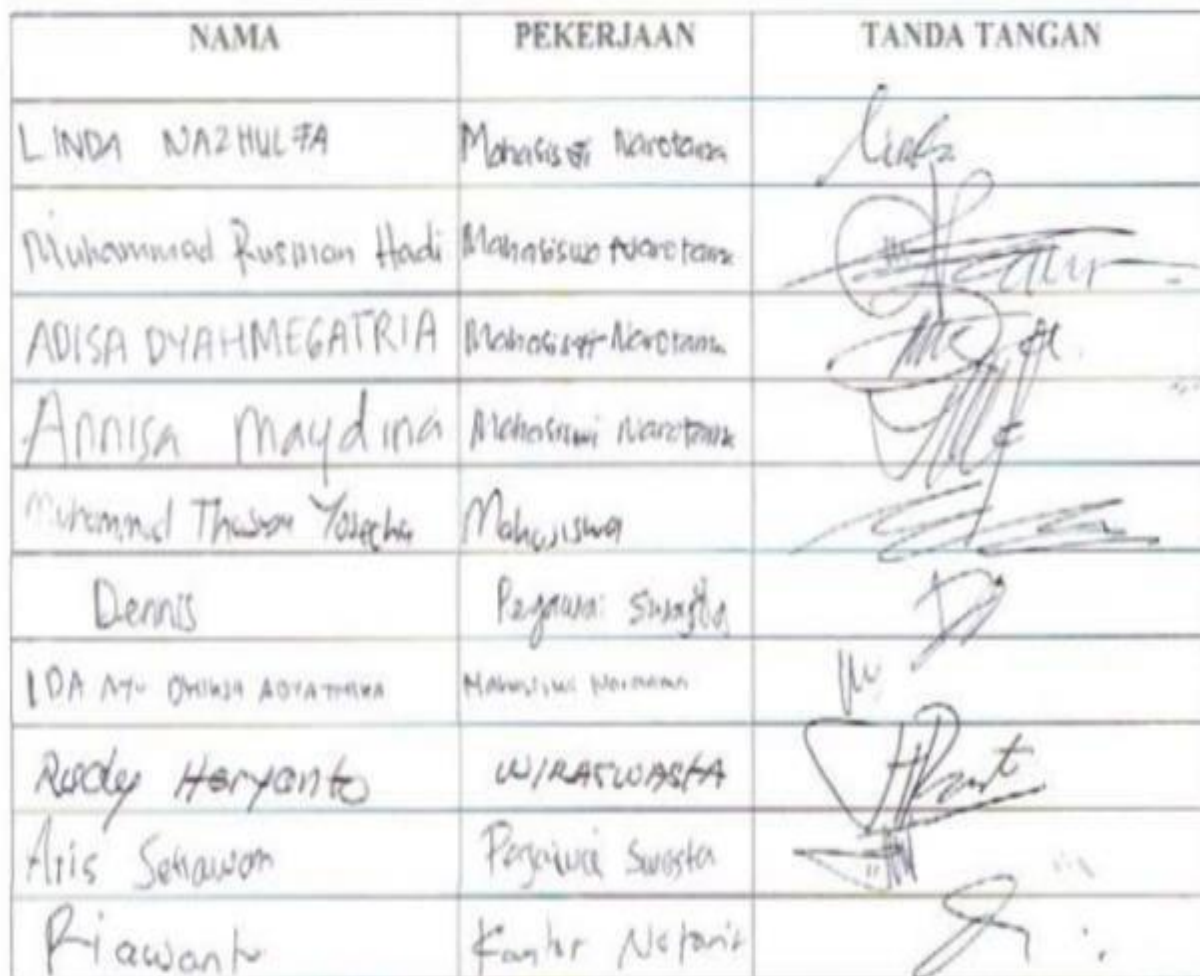 NAMA PEKERJAAN TANDA TANGAN
LINDA NAZHULFA Mahasiswi Narotama
Muhammad Rusman Hadi Mahasiswa Narotama
ADISA DYAHMEGATRIA Mahasiswi Narotama
Annisa Maydina Mahasiswi Narotama
Muhammad Mahasiswa
Dennis Pegawai Swasta
IDA AYU Mahasiswi Narotama
Rudy Haryanto WIRASWASTA
Aris Setiawan Pegawai Swasta
Riawanto Kantor Notaris